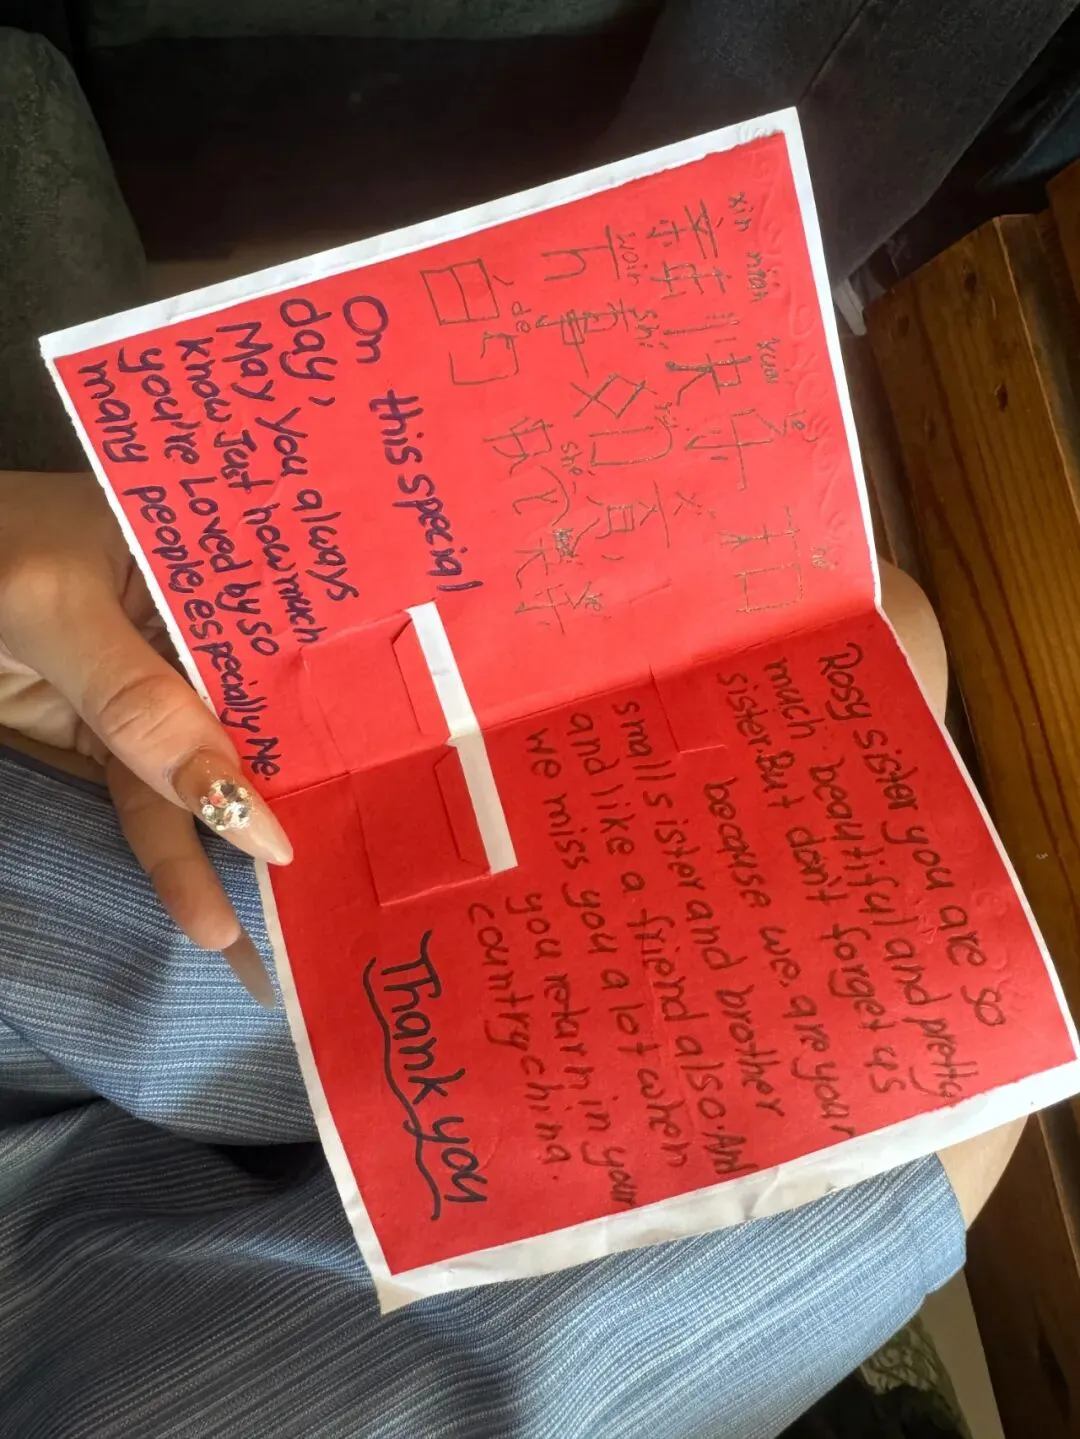 xin nian kuai le hé
新年快乐 和
万事如意
On this special
day,
May you always
Know Just how much
you're Loved by so
many people especially Me
Rosy sister you are so
much beautiful and pretty
sister. But don't forget us
because we are your
small sister and brother
and like a friend also. And
we miss you a lot when
you retarn in your
country china.
Thank you